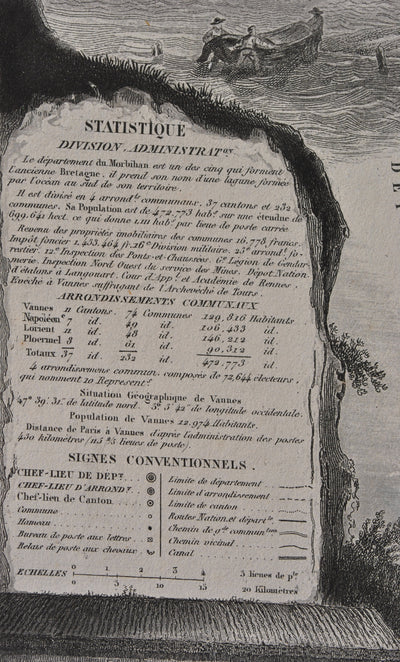 STATISTIQUE
DIVISION ADMINISTRATve
Le département du Morbihan est un des cinq qui forment
l'ancienne Bretagne, il prend son nom d'une lagune formée
par l'océan au Sud de son territoire.
Il est divisé en 4 arrondts communaux, 37 cantons et 232
communes. Sa Population est de 472.773 habs sur une étendue de
699.641 hect. ce qui donne habs par lieue de poste carrée
Revenu des propriétés imobiliaires des communes 16.778 francs.
Impôt foncier 1.453.464 fr. 16e Division militaire. 25e arrondt fo-
restier. 12e Inspection des Ponts-et-Chaussées. 6e Légion de Gendar-
merie. Inspection Nord Ouest du service des Mines. Dépôt Nation
d'étalons à Langonart. Cour d'Appl et Académie de Rennes.
Evêché à Vannes suffragant de l'Archevêché de Tours.
ARRONDISSEMENTS COMMUNAUX
Vannes 11 Cantons. 74 Communes 129,816 Habitants
Napoléone 7 id. 49 id. 106,433 id.
Lorient 11 id. 48 id. 146,212 id.
Ploermel 8 id. 61 id. 90,312 id.
Totaux 37 232 472.773
4 arrondissemens commun. composés de 72,644 électeurs,
qui nomment 10 Represents
Situation Géographique de Vannes
47° 39' 31" de latitude nord. 5° 5' 42" de longitude occidentale.
Population de Vannes 12.974 Habitants.
Distance de Paris à Vannes d'après l'administration des postes
450 kilomètres (lieues de poste).
SIGNES CONVENTIONNELS.
CHEF-LIEU DE DÉPt
CHEF-LIEU D'ARRONDt
Chef-lieu de Canton
Commune
Hameau
Bureau de poste aux lettres
Relais de poste aux chevaux
Limite de département
Limite d'arrondissement
Limite de canton
Routes Nation. et départle
Chemin de gde commun.
Chemin vicinal
Canal
ECHELLES 0 1 2 3 4 5 lieues de pte
0 5 10 15 20 Kilomètres
DE